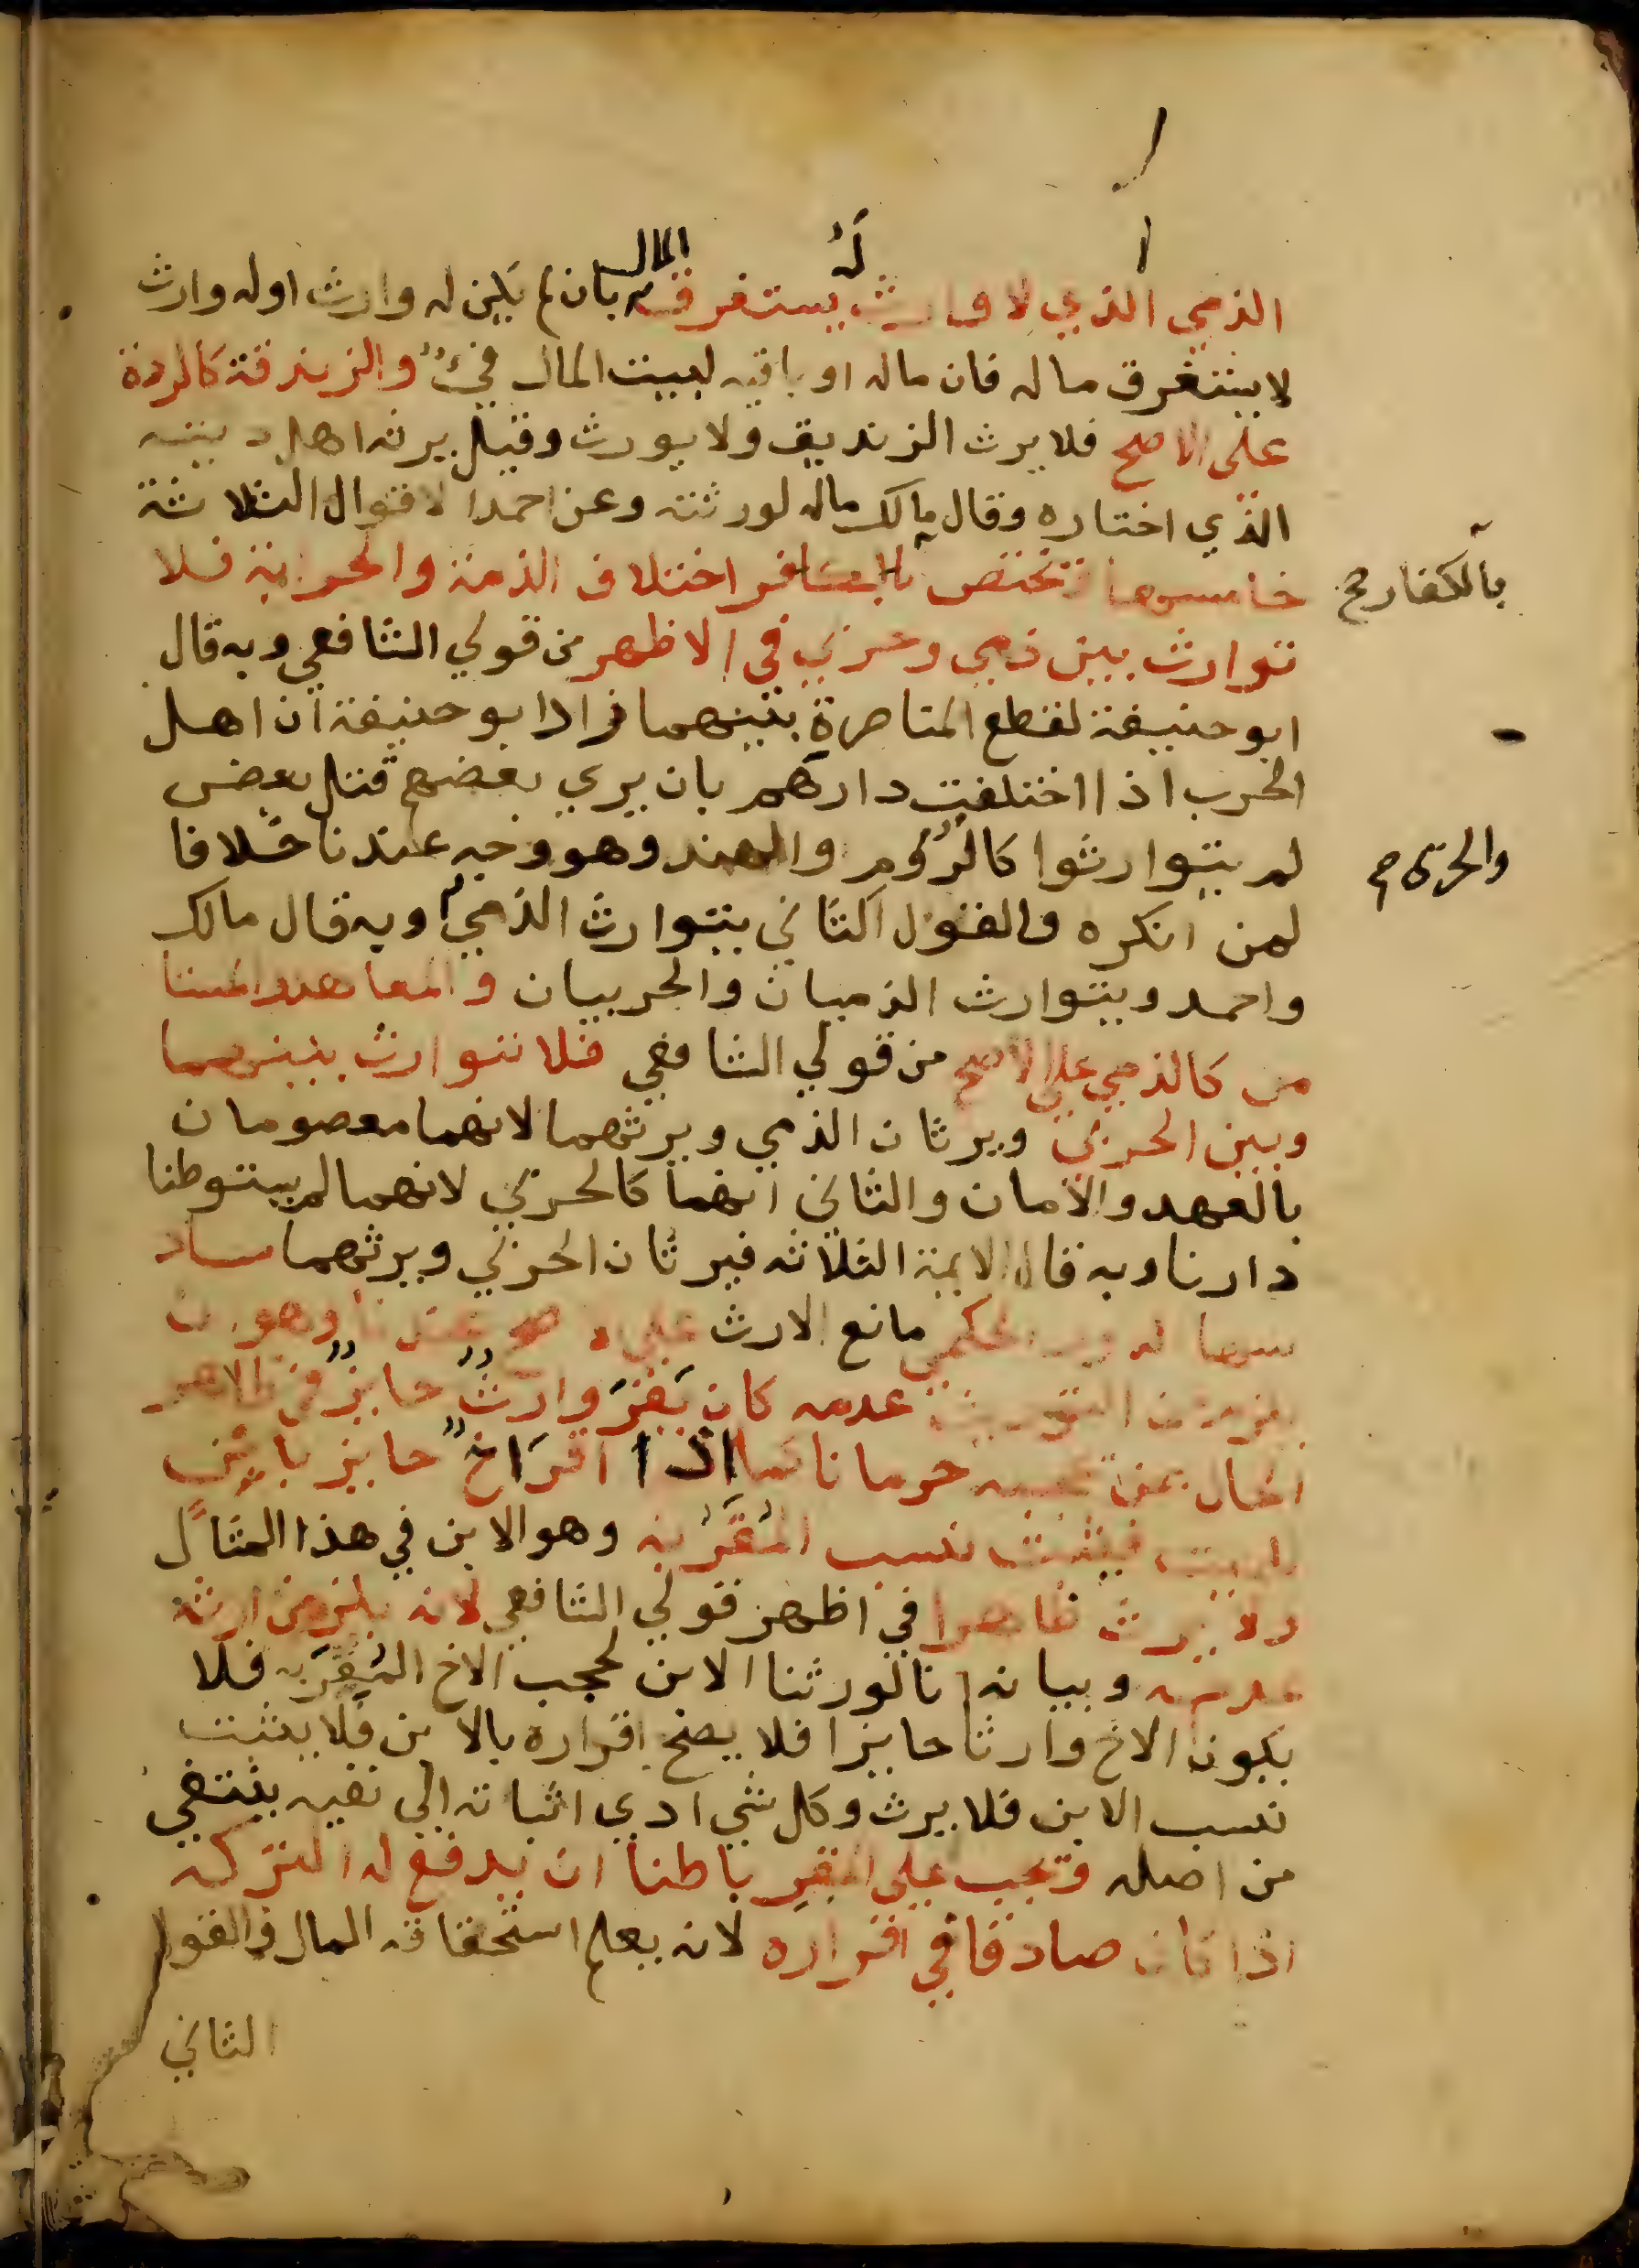 الذمي الذي لا وارث له يستغرق المال بان لم يكن له وارث او له وارث
لا يستغرق ماله فان ماله او باقيه لبيت المال فيءٌ والزندقة كالردة
على الاصح فلا يرث الزنديق ولا يورث وقيل يرثه اهل دينه
الذي اختاره وقال مالك ماله لورثته وعن احمد الاقوال الثلاثة
خامسها تختص اختلاف الذمة والحرابة فلا
بالكفار صح
توارث بين ذمي وحربي في الاظهر من قولي الشافعي وبه قال
ابو حنيفة لقطع المناصرة بينهما زاد ابو حنيفة ان اهل
الحرب اذا اختلفت دارهم بان يري بعضهم قتل بعض
لم يتوارثوا كالرُّوم والهند وهو وجه عندنا خلافا
والحربي صح
لمن انكره والقول الثاني يتوارث الذمي وبه قال مالك
واحمد ويتوارث الذميان والحربيان والمعاهد والمستا
من كالذمي على الاصح من قولي الشافعي فلا توارث بينهما
وبين الحربي ويرثان الذمي ويرثهما لانهما معصومان
بالعهد والامان والثاني انهما كالحربي لانهما لم يستوطنا
دارنا وبه قال الايمة الثلاثه فيرثان الحربي ويرثهما ساد
سها الدور الحكمي مانع الارث عندنا وهو ان
يلزم من التوريث عدمه كان يُقرَّ وارثٌ حايزٌ في ظاهر
الحال بمن يحجبه حرمانا كما اذا اقرَّ اخٌ حايز بابن
للميت فيثبت نسب المُقَرّ به وهو الابن في هذا المثال
ولا يرث ظاهرا في اظهر قولي الشافعي لانه يلزم من ارثه
عدمه وبيانه انا لو ورثنا الابن لحجب الاخ المُقِرَّ به فلا
يكون الاخ وارثا حايزا فلا يصح اقراره بالابن فلا يثبت
نسب الابن فلا يرث وكل شي ادي اثباته الي نفيه ينتفي
من اصله وتجب على المقِر باطنا ان يدفع له التركه
اذا كان صادقا في اقراره لانه يعلم استحقاقه المال والقول
الثاني